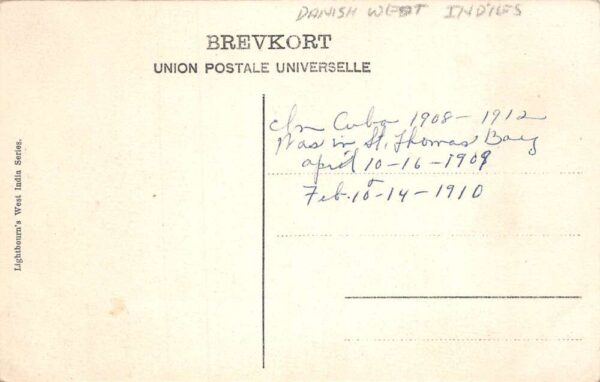 DANISH WEST INDIES
BREVKORT
UNION POSTALE UNIVERSELLE
In Cuba 1908-1912
Was in St. Thomas Bay
april 10-16-1909
Feb. 10-14-1910
Lightbourn's West India Series.